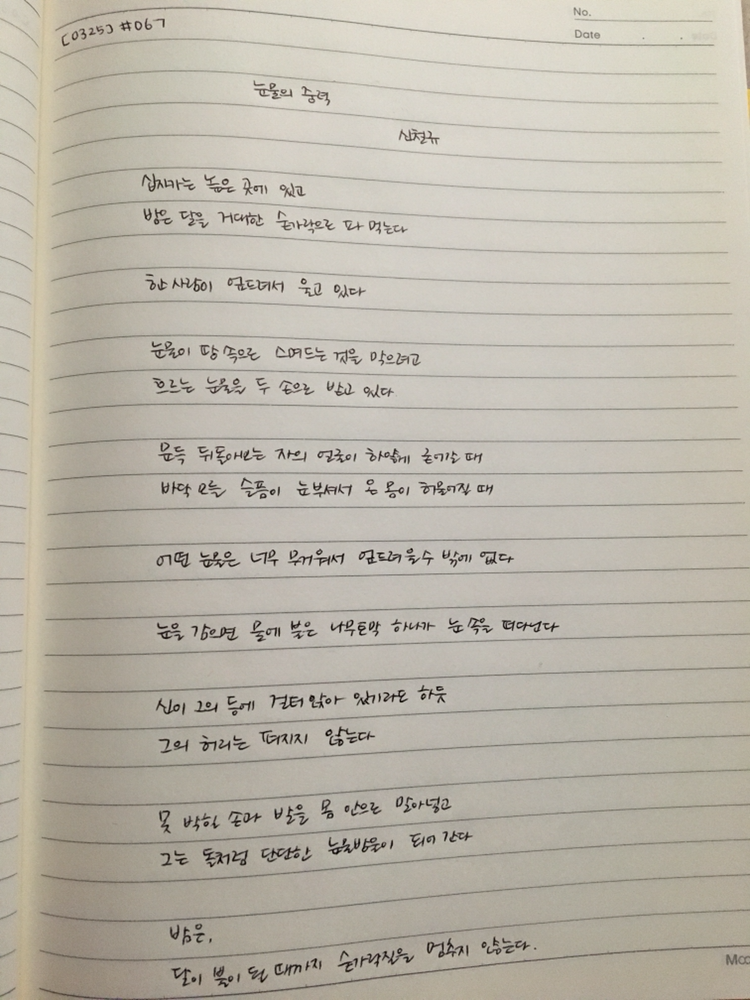 [0325] #067
No.
Date . .
눈물의 중력
신철규
십자가는 높은 곳에 있고
밤은 달을 거대한 숟가락으로 파 먹는다
한 사람이 엎드려서 울고 있다
눈물이 땅 속으로 스며드는 것을 막으려고
흐르는 눈물을 두 손으로 받고 있다
문득 뒤돌아보는 자의 얼굴이 하얗게 굳어갈 때
바닥 모를 슬픔이 눈부셔서 온 몸이 허물어질 때
어떤 눈물은 너무 무거워서 엎드려 울 수 밖에 없다
눈을 감으면 물에 불은 나무토막 하나가 눈 속을 떠다닌다
신이 그의 등에 걸터 앉아 있기라도 하듯
그의 허리는 펴지지 않는다
못 박힌 손과 발을 몸 안으로 말아넣고
그는 돌처럼 단단한 눈물방울이 되어 간다
밤은,
달이 뿔이 될 때까지 숟가락질을 멈추지 않는다.